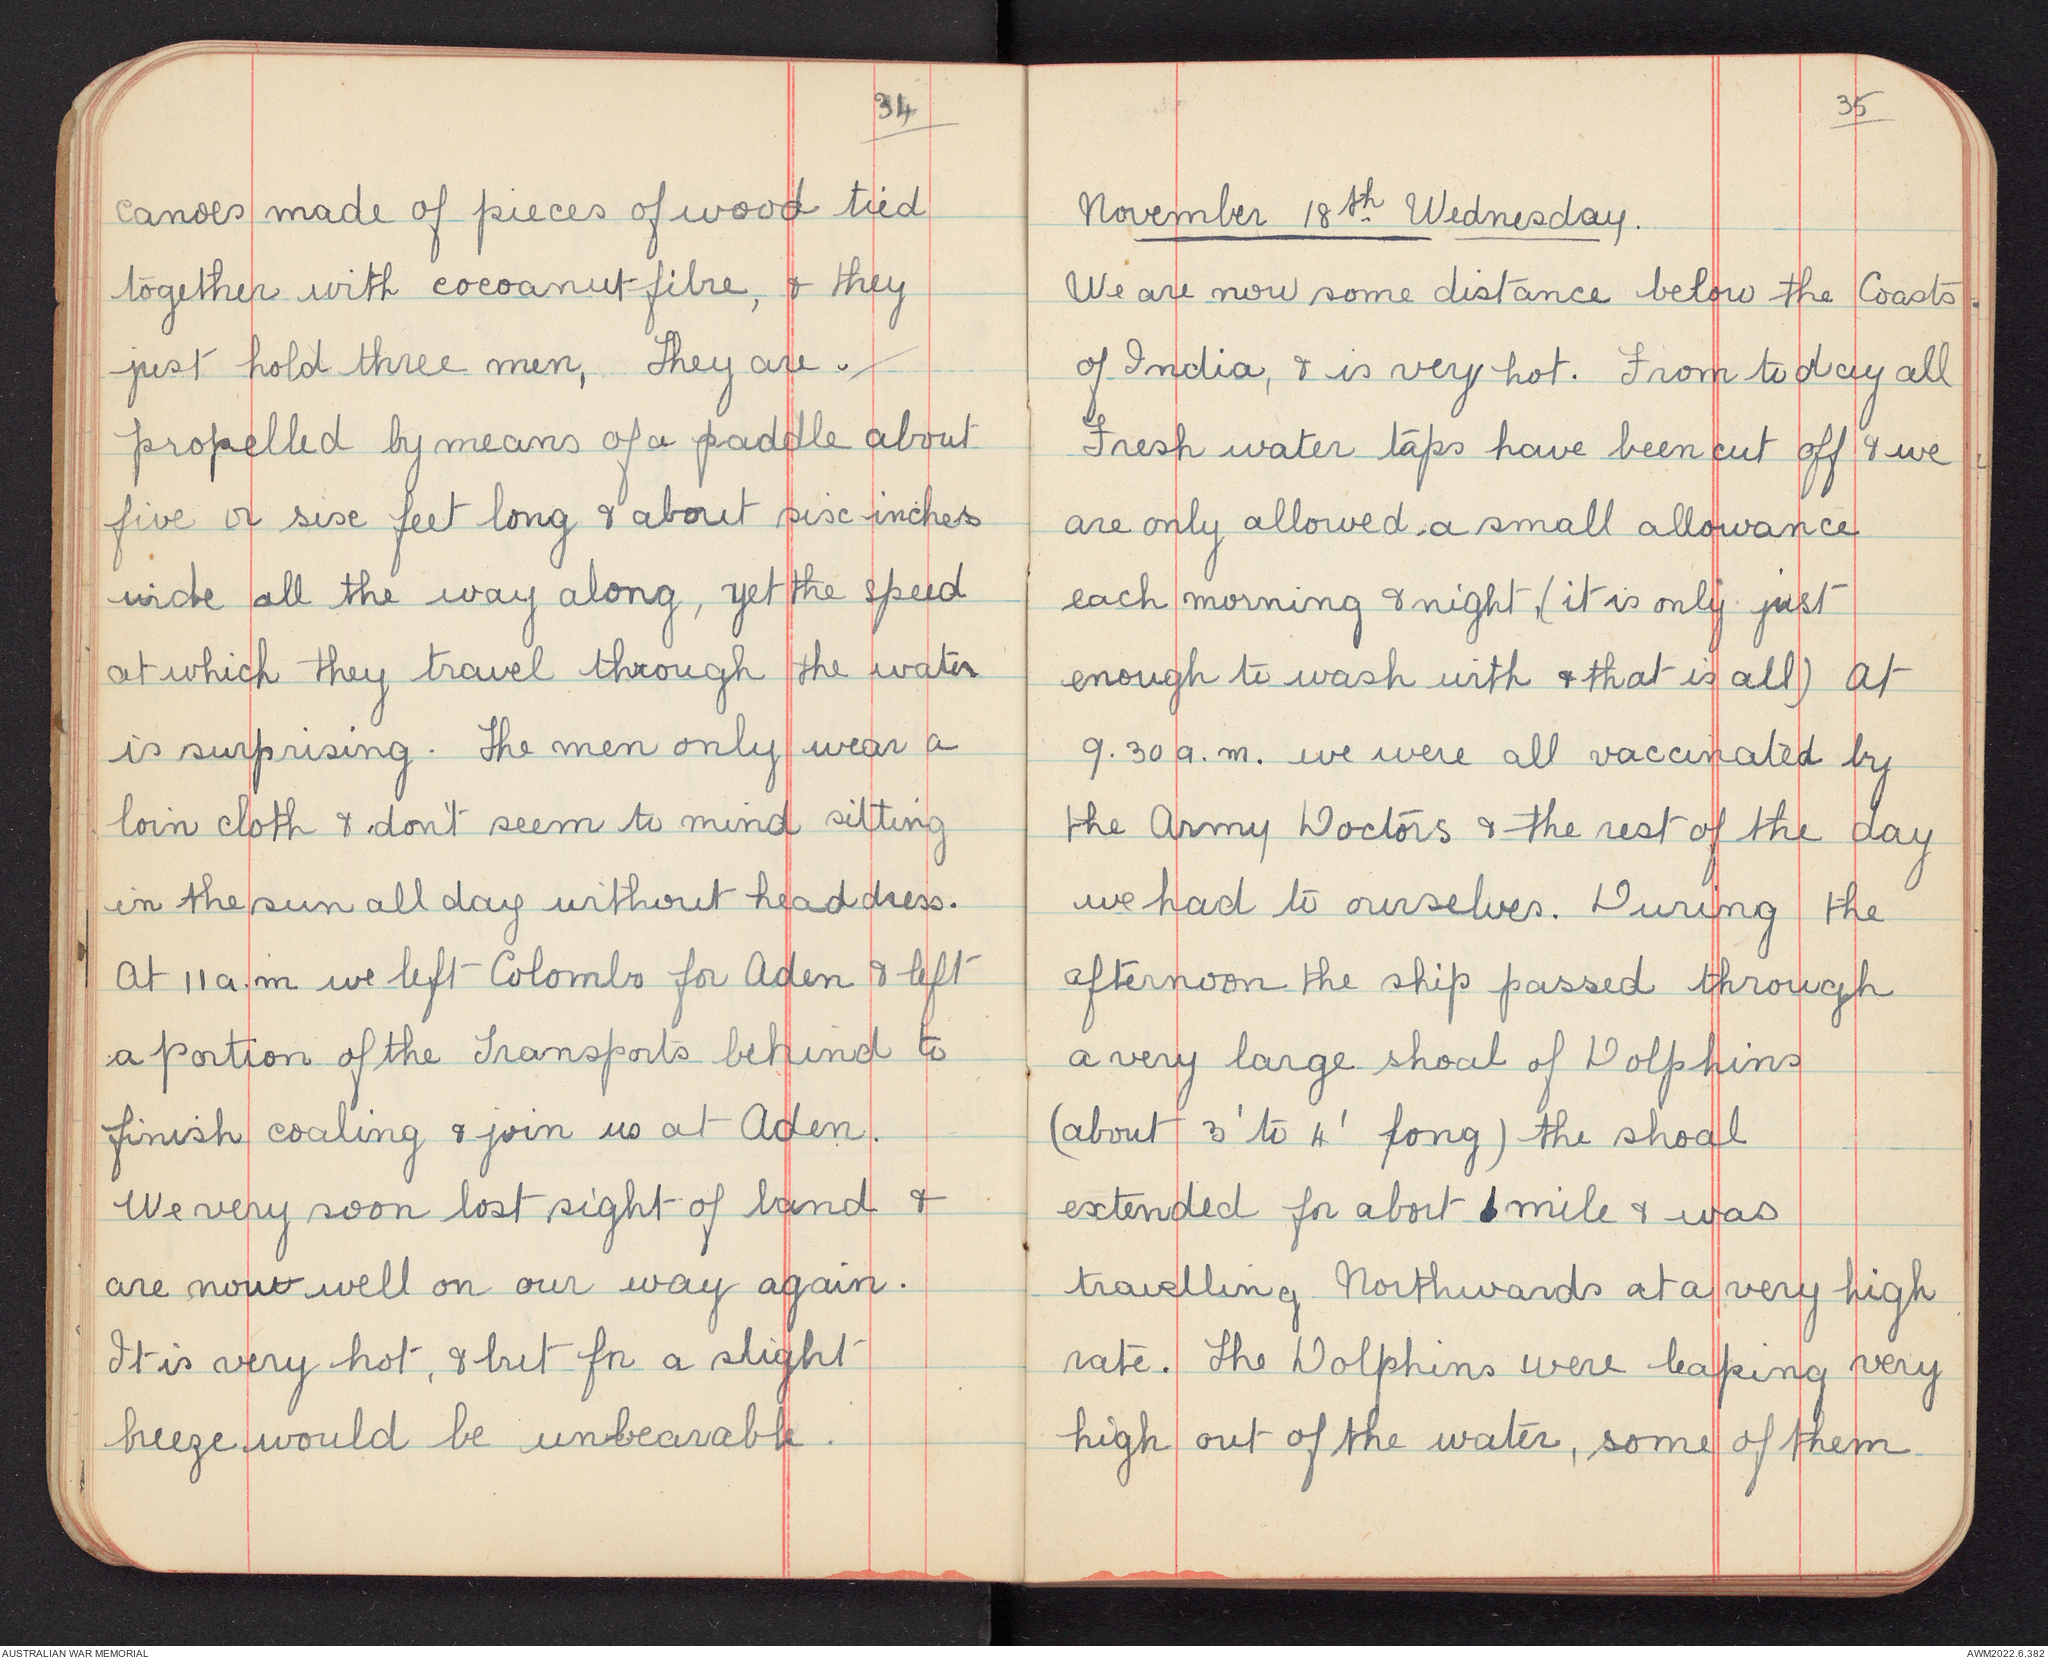 34
canoes made of pieces of wood tied
together with cocoanut fibre, & they
just hold three men, They are
propelled by means of a paddle about
five or six feet long & about six inches
wide all the way along, yet the speed
at which they travel through the water
is surprising. The men only wear a
loin cloth & don't seem to mind sitting
in the sun all day without head dress.
At 11 a.m we left Colombo for Aden & left
a portion of the Transports behind to
finish coaling & join us at Aden.
We very soon lost sight of land &
are now well on our way again.
It is very hot, & but for a slight
breeze would be unbearable.
35
November 18th Wednesday.
We are now some distance below the Coasts
of India, & is very hot. From to day all
Fresh water taps have been cut off & we
are only allowed a small allowance
each morning & night, (it is only just
enough to wash with & that is all) At
9.30 a.m. we were all vaccinated by
the Army Doctors & the rest of the day
we had to ourselves. During the
afternoon the ship passed through
a very large shoal of Dolphins
(about 3' to 4' long) the shoal
extended for abort 1 mile & was
travelling Northwards at a very high
rate. The Dolphins were leaping very
high out of the water, some of them
AUSTRALIAN WAR MEMORIAL
AWM2022.6.382